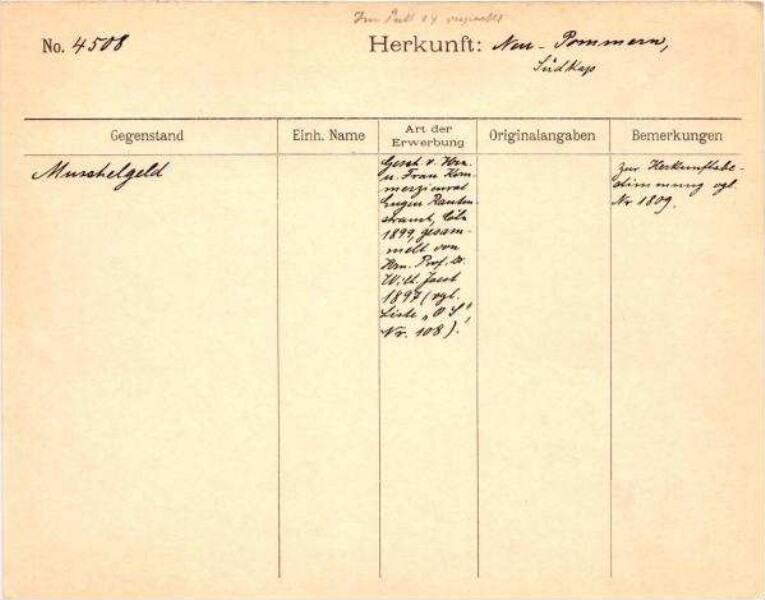 Im Pult 14
No. 4508
Herkunft: Neu-Pommern,
Südkap
Gegenstand
Einh. Name
Art der
Erwerbung
Originalangaben
Bemerkungen
Muschelgeld
Gesch. v. Hrn.
u. Frau Kom-
merzienrat
Eugen Rauten-
strauch, Cöln
1899, gesam-
melt von
Hrn. Prof. Dr.
W. U. Joest
1897 (vgl.
Liste „O S",
Nr. 108).
Zur Herkunftsbe-
stimmung vgl.
Nr 1809.